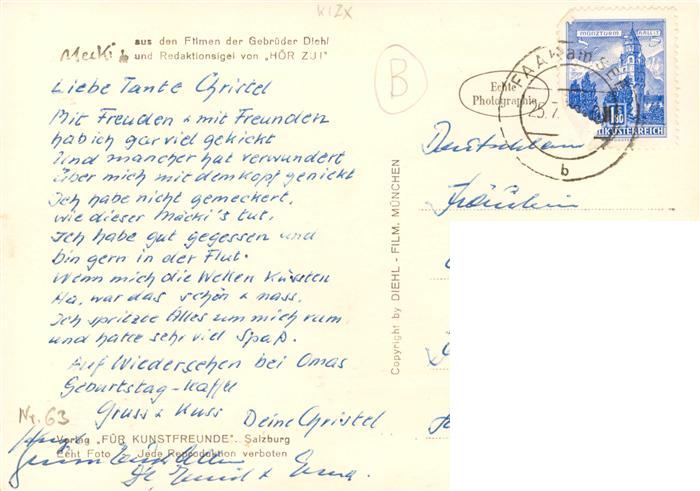 KIZX
Mecki
aus den Filmen der Gebrüder Diehl
und Redaktionsigel von „HÖR ZU!"
Liebe Tante Christel
Mit Freuden & mit Freunden
hab ich gar viel gekickt
Und mancher hat verwundert
Über mich mit dem Kopf genickt
Ich habe nicht gemeckert,
wie dieser Mäcki's tut,
Ich habe gut gegessen und
bin gern in der Flut.
Wenn mich die Wellen küssten
Ha, war das schön & nass.
Ich spritzte Alles um mich rum
und hatte sehr viel Spaß.
Auf Wiedersehen bei Omas
Geburtstag-Kaffee
Gruss & Kuss Deine Christel
Nr. 63
Verlag „FÜR KUNSTFREUNDE". Salzburg
Echt Foto Jede Reproduktion verboten
&
Copyright by DIEHL - FILM. MÜNCHEN
B
Echte
Photographie
FAAK am SEE
25.7.
b
MÜNZTURM HALL i. T.
1.80
REPUBLIK ÖSTERREICH
Deutschland
Fräulein